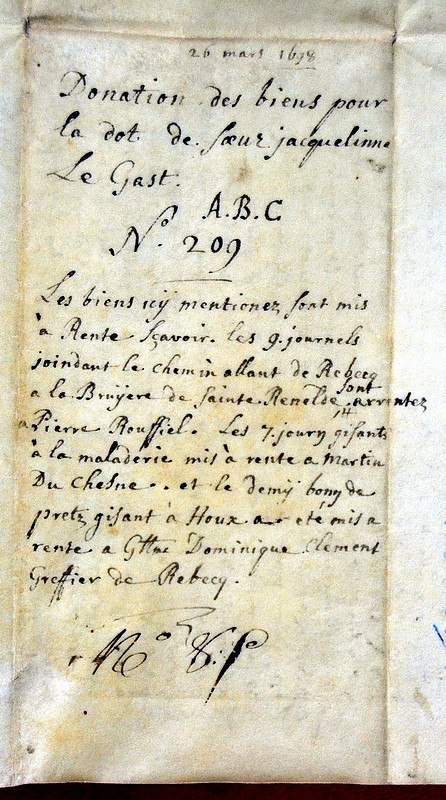 26 mars 1698
Donation des biens pour
la dot de sœur jacquelinne
Le Gast.
A.B.C
N.º 209
Les biens icÿ mentionez sont mis
à Rente sçavoir. les 9. journels
joindant le chemin allant de Rebecq
a la Bruÿere de sainte Renelde sont arrentez
a Pierre Rouffiel. Les 7. journ gisants
à la maladerie mis à rente a Martin
Du Chesne. et le demÿ bony de
pretz gisant à Houx a eté mis a
rente a Dominique Clement
Greffier de Rebecq.